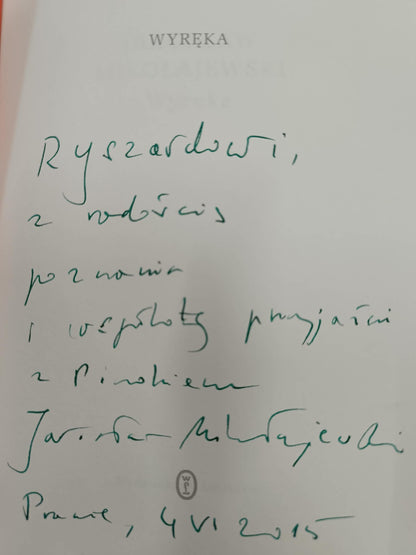 WYRĘKA
Ryszardowi,
z radością
poznania
i wspólnoty przyjaźni
z Pinokiem
Jarosław Mikołajewski
4 VI 2015